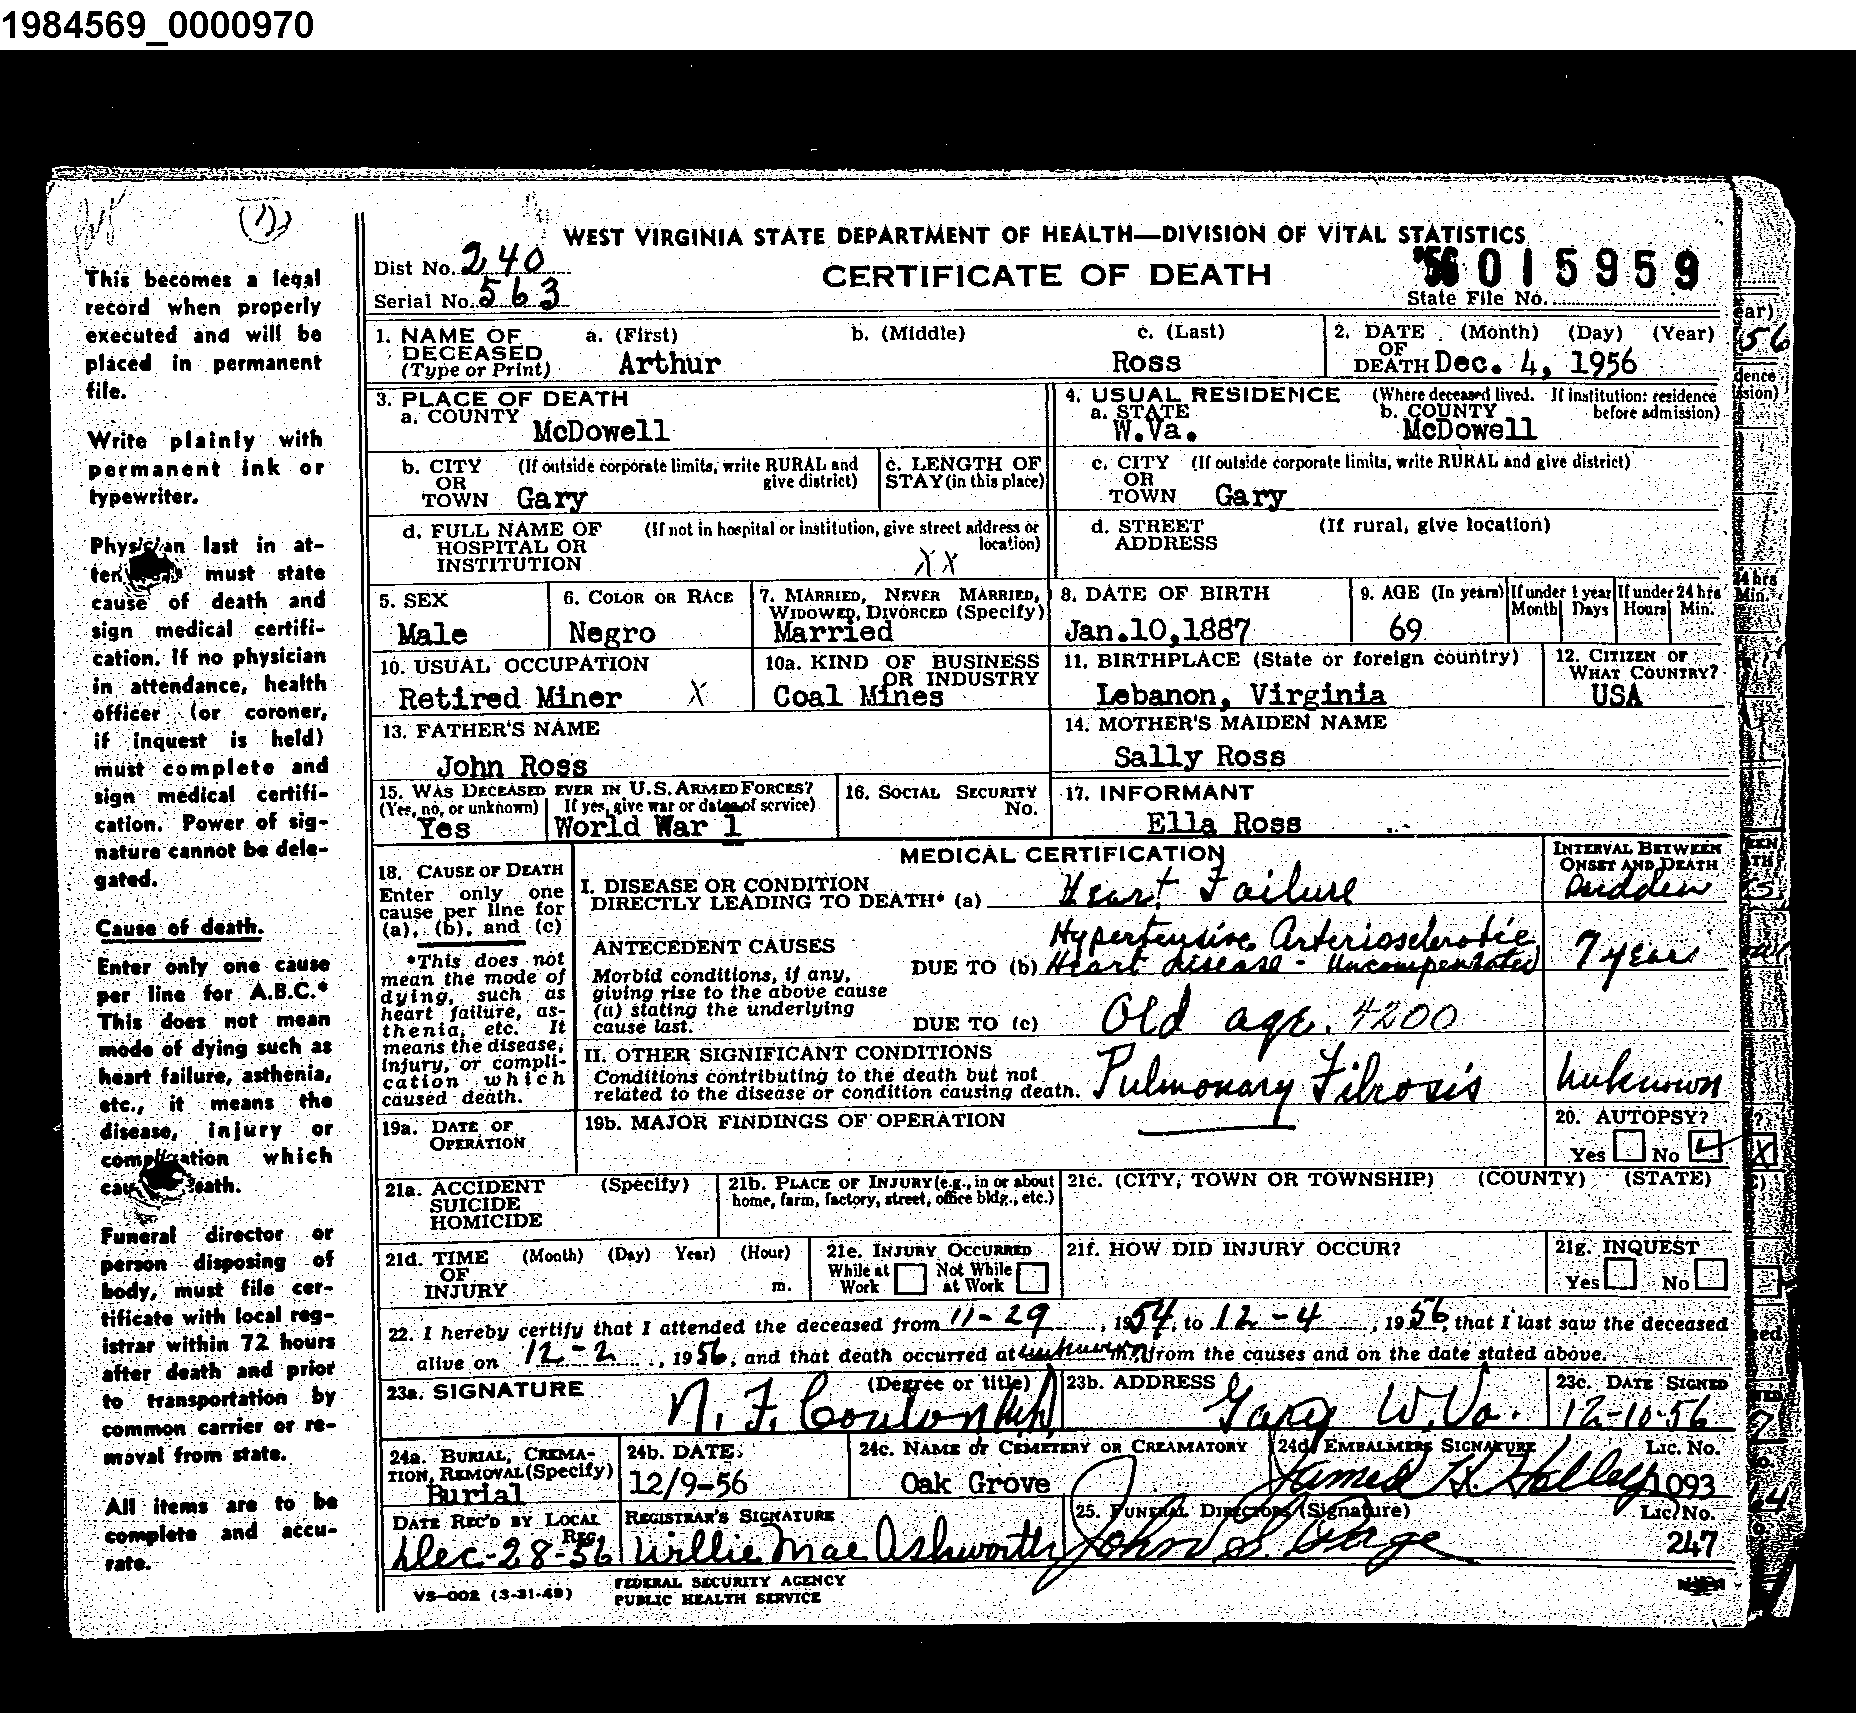 1984569_0000970
WEST VIRGINIA STATE DEPARTMENT OF HEALTH—DIVISION OF VITAL STATISTICS
Dist No. 240
CERTIFICATE OF DEATH
'56 015959
Serial No. 563
State File No.
1. NAME OF DECEASED (Type or Print)
a. (First) Arthur
b. (Middle)
c. (Last) Ross
2. DATE OF DEATH (Month) (Day) (Year) Dec. 4, 1956
3. PLACE OF DEATH
a. COUNTY McDowell
4. USUAL RESIDENCE (Where deceased lived. If institution: residence before admission)
a. STATE W.Va.
b. COUNTY McDowell
b. CITY OR TOWN (If outside corporate limits, write RURAL and give district) Gary
c. LENGTH OF STAY (in this place)
c. CITY OR TOWN (If outside corporate limits, write RURAL and give district) Gary
d. FULL NAME OF HOSPITAL OR INSTITUTION (If not in hospital or institution, give street address or location) XX
d. STREET ADDRESS (If rural, give location)
5. SEX Male
6. COLOR OR RACE Negro
7. MARRIED, NEVER MARRIED, WIDOWED, DIVORCED (Specify) Married
8. DATE OF BIRTH Jan.10,1887
9. AGE (In years) 69
If under 1 year Month Days
If under 24 hrs Hours Min.
10. USUAL OCCUPATION Retired Miner X
10a. KIND OF BUSINESS OR INDUSTRY Coal Mines
11. BIRTHPLACE (State or foreign country) Lebanon, Virginia
12. CITIZEN OF WHAT COUNTRY? USA
13. FATHER'S NAME John Ross
14. MOTHER'S MAIDEN NAME Sally Ross
15. WAS DECEASED EVER IN U.S. ARMED FORCES?
(Yes, no, or unknown) Yes
If yes, give war or dates of service) World War 1
16. SOCIAL SECURITY No.
17. INFORMANT Ella Ross
MEDICAL CERTIFICATION
INTERVAL BETWEEN ONSET AND DEATH
18. CAUSE OF DEATH
Enter only one cause per line for (a), (b), and (c)
*This does not mean the mode of dying, such as heart failure, asthenia, etc. It means the disease, injury, or complication which caused death.
I. DISEASE OR CONDITION DIRECTLY LEADING TO DEATH* (a) Heart Failure
Sudden
ANTECEDENT CAUSES
Morbid conditions, if any, giving rise to the above cause (a) stating the underlying cause last.
DUE TO (b) Hypertensive Arteriosclerotic Heart disease - Uncompensated
7 years
DUE TO (c) Old age. 4200
II. OTHER SIGNIFICANT CONDITIONS
Conditions contributing to the death but not related to the disease or condition causing death. Pulmonary Fibrosis
Unknown
19a. DATE OF OPERATION
19b. MAJOR FINDINGS OF OPERATION
20. AUTOPSY?
Yes No
21a. ACCIDENT SUICIDE HOMICIDE (Specify)
21b. PLACE OF INJURY (e.g., in or about home, farm, factory, street, office bldg., etc.)
21c. (CITY, TOWN OR TOWNSHIP) (COUNTY) (STATE)
21d. TIME OF INJURY (Month) (Day) Year) (Hour) m.
21e. INJURY OCCURRED
While at Work Not While at Work
21f. HOW DID INJURY OCCUR?
21g. INQUEST
Yes No
22. I hereby certify that I attended the deceased from 11-29, 1954, to 12-4, 1956, that I last saw the deceased
alive on 12-2, 1956, and that death occurred at unknown m., from the causes and on the date stated above.
23a. SIGNATURE (Degree or title) N. F. Coulon M.D.
23b. ADDRESS Gary W.Va.
23c. DATE SIGNED 12-10-56
24a. BURIAL, CREMATION, REMOVAL (Specify) Burial
24b. DATE. 12/9-56
24c. NAME OF CEMETERY OR CREAMATORY Oak Grove
24d. EMBALMERS SIGNATURE James H. Holley
Lic. No. 1093
DATE REC'D BY LOCAL REG. Dec-28-56
REGISTRAR'S SIGNATURE Willie Mae Ashworth
25. FUNERAL DIRECTORS (Signature) John S.
Lic. No. 247
VS-002 (3-31-49)
FEDERAL SECURITY AGENCY
PUBLIC HEALTH SERVICE
This becomes a legal
record when properly
executed and will be
placed in permanent
file.
Write plainly with
permanent ink or
typewriter.
Physician last in at-
must state
cause of death and
sign medical certifi-
cation. If no physician
in attendance, health
officer (or coroner,
if inquest is held)
must complete and
sign medical certifi-
cation. Power of sig-
nature cannot be dele-
gated.
Cause of death.
Enter only one cause
per line for A.B.C.*
This does not mean
mode of dying such as
heart failure, asthenia,
etc., it means the
disease, injury or
complication which
death.
Funeral director or
person disposing of
body, must file cer-
tificate with local reg-
istrar within 72 hours
after death and prior
to transportation by
common carrier or re-
moval from state.
All items are to be
complete and accu-
rate.